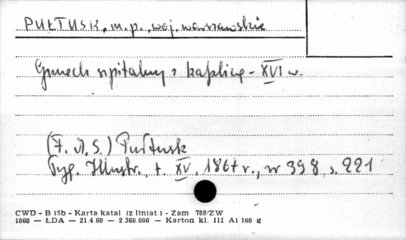 PUŁTUSK, m.p., woj. warszawskie
Gmach szpitalny z kaplicą - XVI w.
(F. M. S.) Pułtusk
Tyg. Illustr., t. XV, 1867 r., nr 398, s. 221
CWD - B 15b - Karta katal (z liniat.) - Zam 788/ZW
1060 — ŁDA — 21.4.60 — 2 360.000 — Karton kl. III A1 160 g